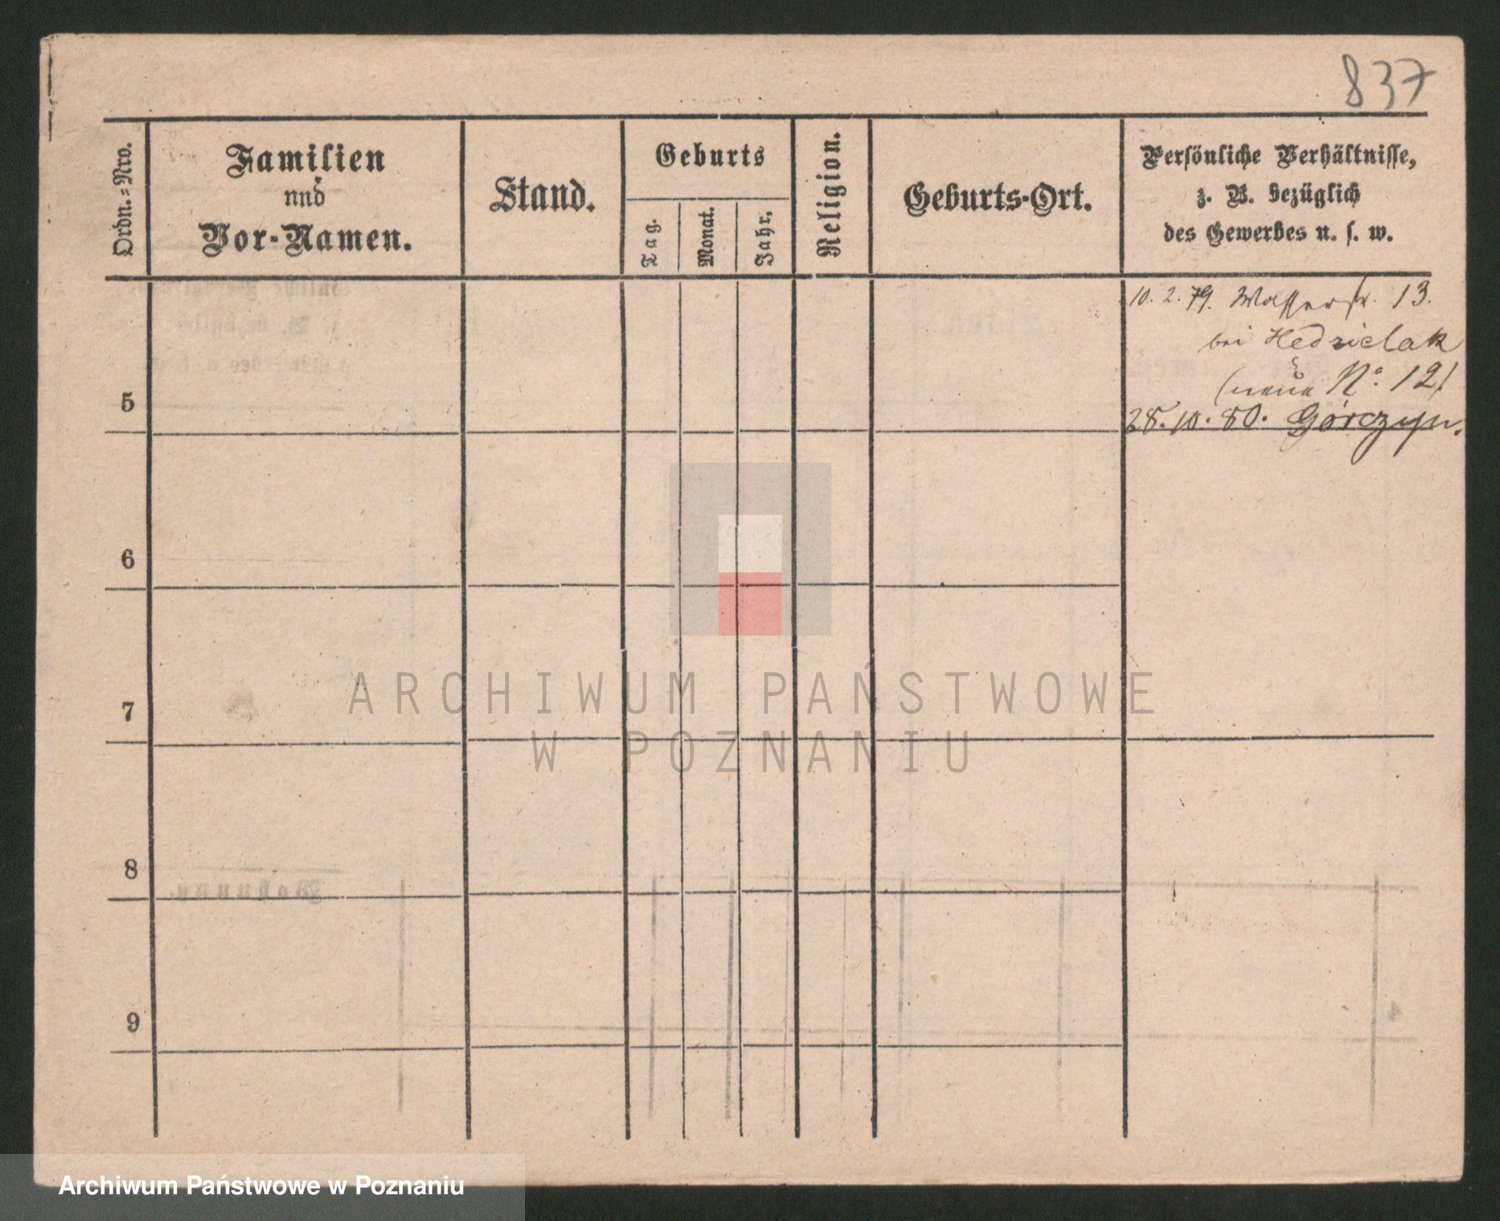 837
Ordn.=Nro.
Familien
und
Vor-Namen.
Stand.
Geburts
Tag.
Monat.
Jahr.
Religion.
Geburts-Ort.
Persönliche Verhältnisse,
z. B. bezüglich
des Gewerbes u. s. w.
10. 2. 79. Wasserstr. 13.
bei Hedzielak
(neue No. 12)
28. 10. 80. Górczyn.
5
6
7
8
9
ARCHIWUM PAŃSTWOWE
W POZNANIU
Archiwum Państwowe w Poznaniu